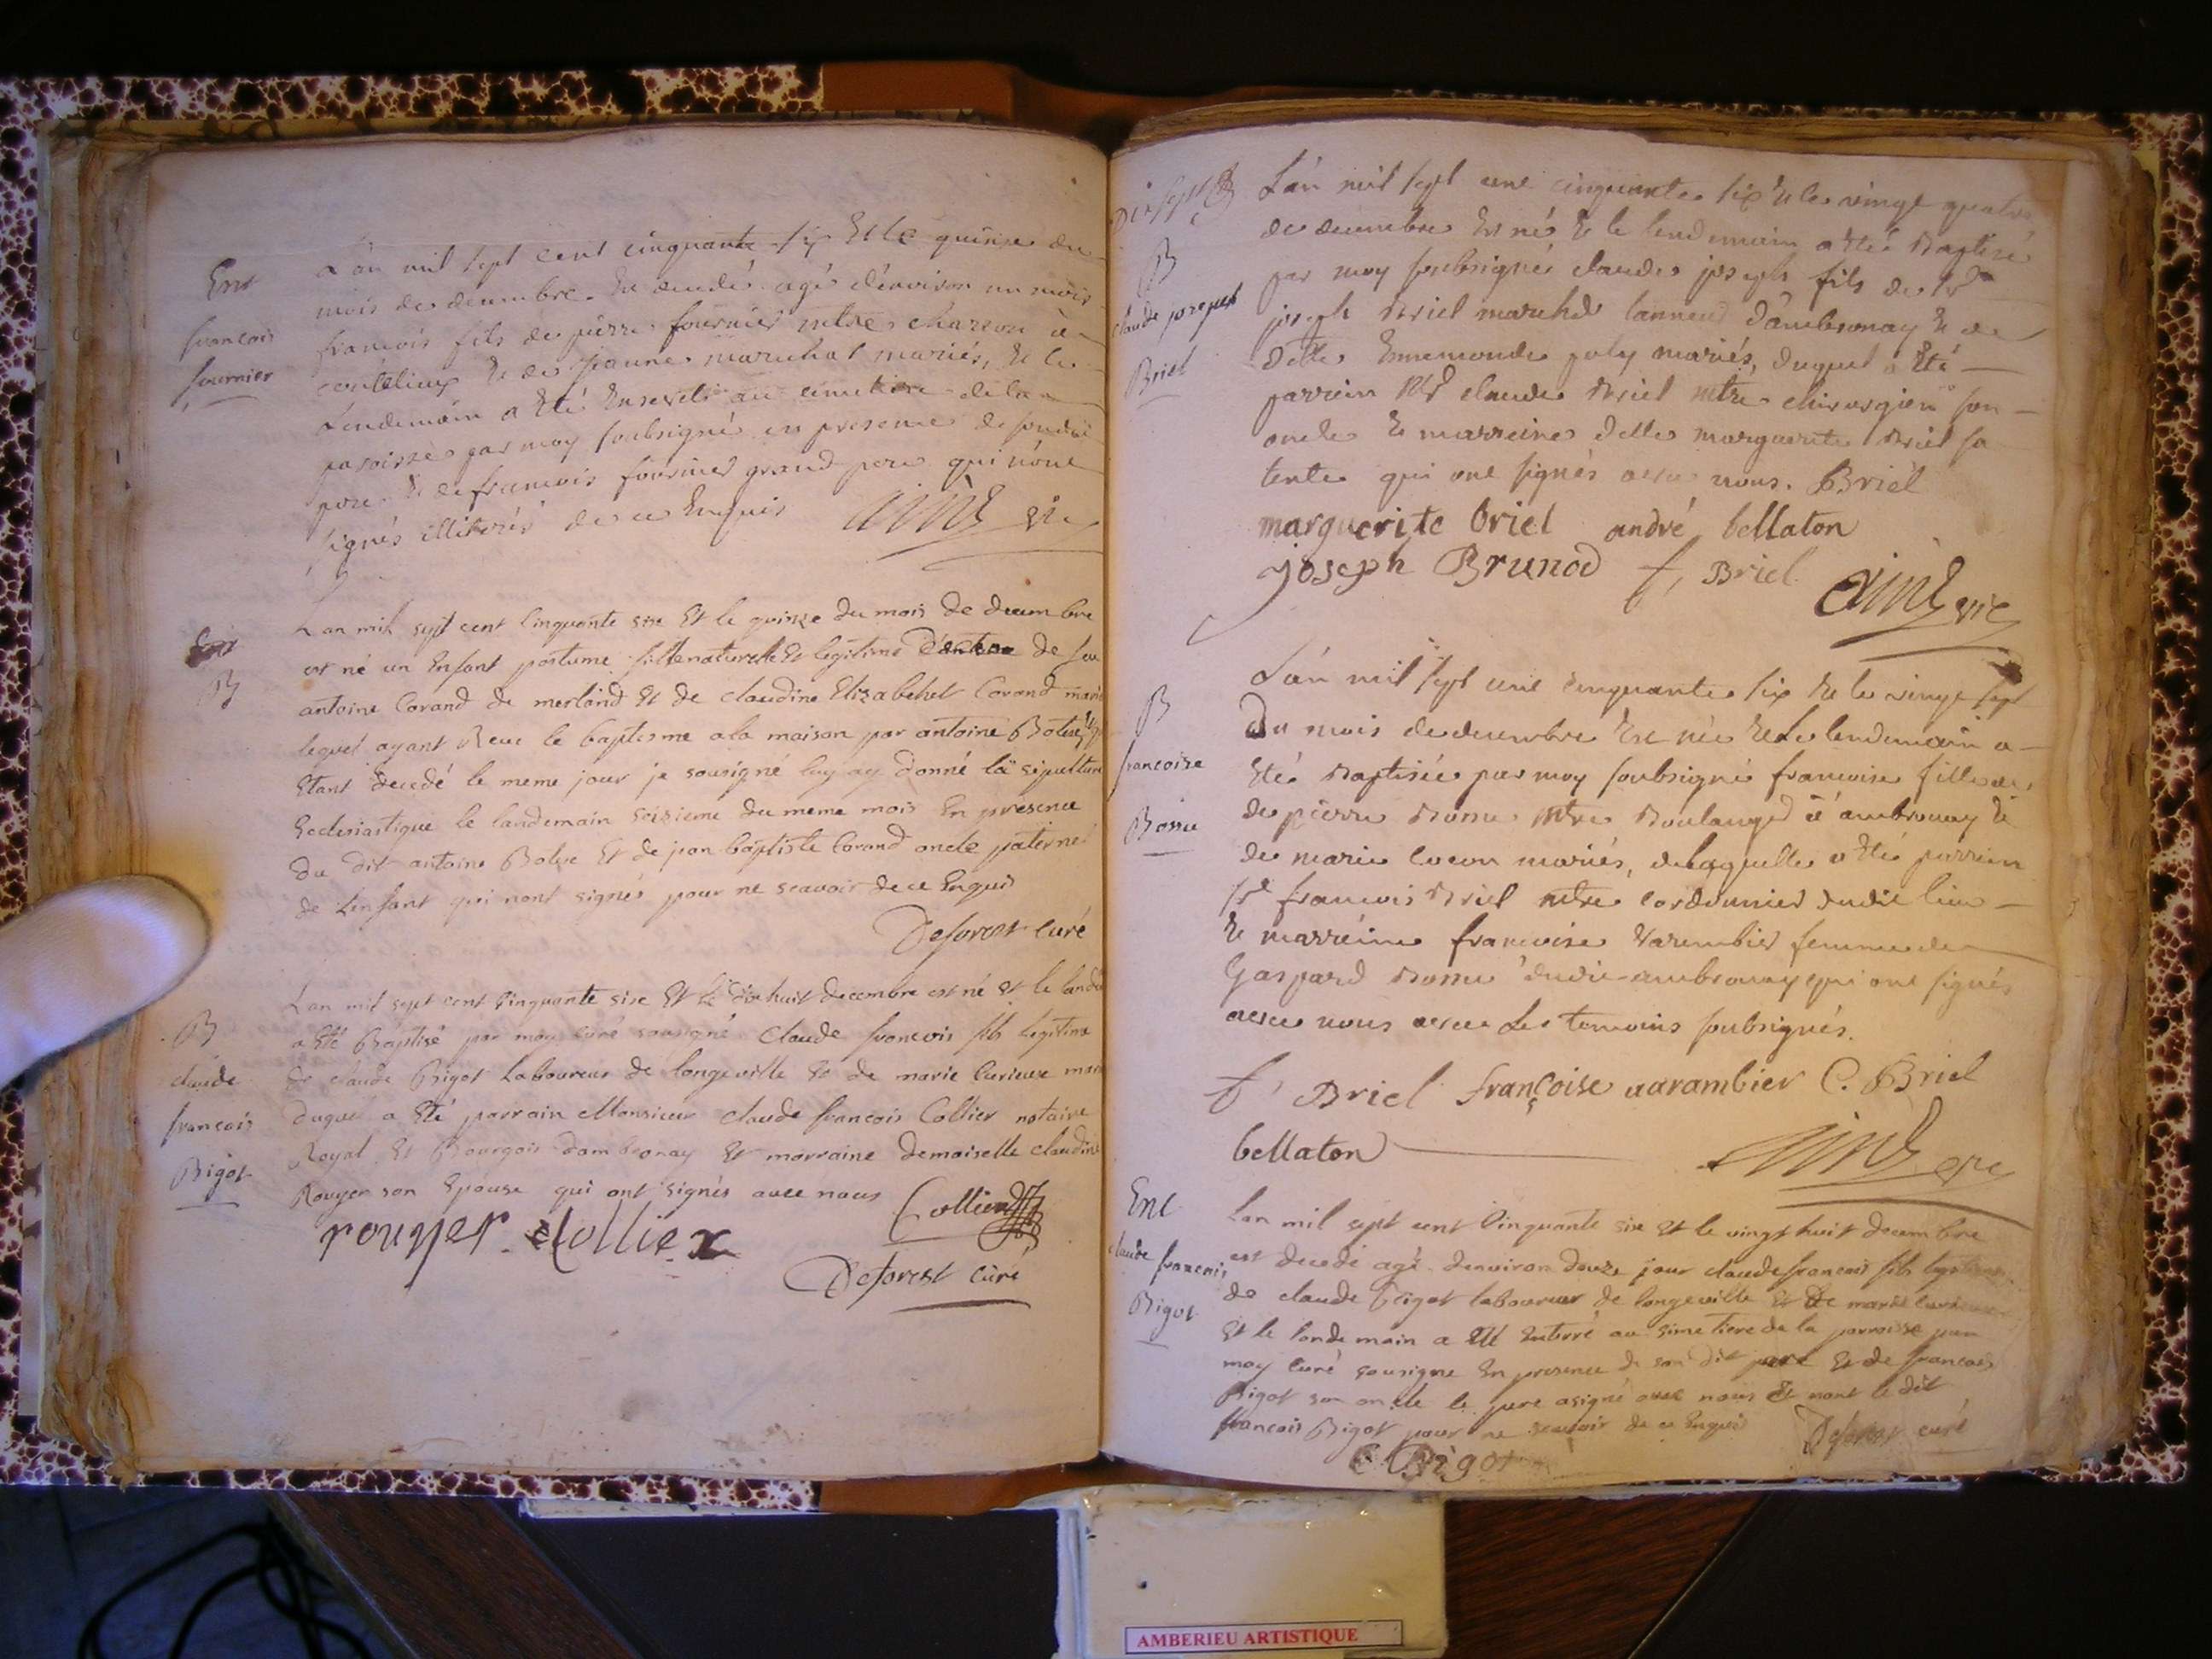 Ent
francois
fournier
L'an mil sept cent cinquante six Et le quinze du
mois de decembre Est decedé agé d'environ un mois
francois fils de pierre fournier mtre charon a
coutelieux & de jeanne marechal mariés, & le
Lendemain a Eté Enseveli au cimetiere de la
paroisse par moy soubsigné en presence de sondit
pere & de francois fournier grand pere qui n'ont
signés illiterés de ce Enquis
B
Lan mil sept cent Cinquante six Et le quinze du mois de decembre
est né un Enfant postume fils naturelle Et legitime de feu
antoine Corand de merland Et de claudine Elizabehet Corand mariés
lequel ayant Receu le baptesme a la maison par antoine Bolue
Etant decedé le meme jour je sousigné luy ay donné la sepulture
Ecclesiastique le landemain seizieme du meme mois En presence
du dit antoine Bolue Et de jean baptiste Corand oncle paternel
de Lenfant qui nont signés pour ne scavoir de ce Enquis
Deforest curé
B
claude
francois
Bigot
Lan mil sept cent Cinquante six Et le dix huit decembre est né et le lande
a Eté Baptisé par moy curé sousigné Claude francois fils legitime
de claude Bigot Laboureur de longeville Et de marie Curieux mari
duquel a Eté parrain Monsieur claude francois Collier notaire
Royal Et Bourgois dambronay Et marraine demoiselle claudine
Rouyer son Epouse qui ont signés avec nous Collier
rouyer Collier
Deforest curé
B
claude joseph
Briel
L'an mil sept cent cinquante six & le vingt quatre
de decembre Est né & le lendemain a Eté Baptisé
par moy soubsigné claude joseph fils de Sr
joseph Briel marchd tanneur d'ambronay & de
delle Ennemonde poly mariés, duquel a Eté
parrain Mr claude Briel mtre chirurgien son
oncle & marreine delle marguerite Briel sa
tente qui ont signés avec nous. Briel
marguerite briel andré bellaton
joseph Brunod f, Briel
B
francoise
Bossu
L'an mil sept cent cinquante six & le vingt sept
Du mois de decembre Est née & Le lendemain a
Eté Baptisée par moy soubsigné francoise fille
de pierre Bossu mtre Boulanger a ambronay &
de marie cocon mariés, de laquelle a Eté parrein
Sr francois Briel mtre Cordonnier dudit lieu
& marreine francoise Varembier femme de
Gaspard Bossu dudit ambronay qui ont signés
avec nous avec Les temoins soubsignés.
f, Briel françoise uarambier C. Briel
bellaton
Ent
claude francois
Bigot
Lan mil sept cent Cinquante six Et le vingt huit decembre
est decedé agé denviron douze jour claude francois fils legitime
de claude Bigot laboureur de longeville Et de marie Curieux
Et le landemain a Eté Enterré au simetiere de la parroisse par
moy curé sousigne En presence de son dit pere Et de francois
Bigot son oncle le pere a signé avec nous Et nont le dit
francois Bigot pour ne scavoir de ce Enquis Deforest curé
C Bigot
AMBERIEU ARTISTIQUE